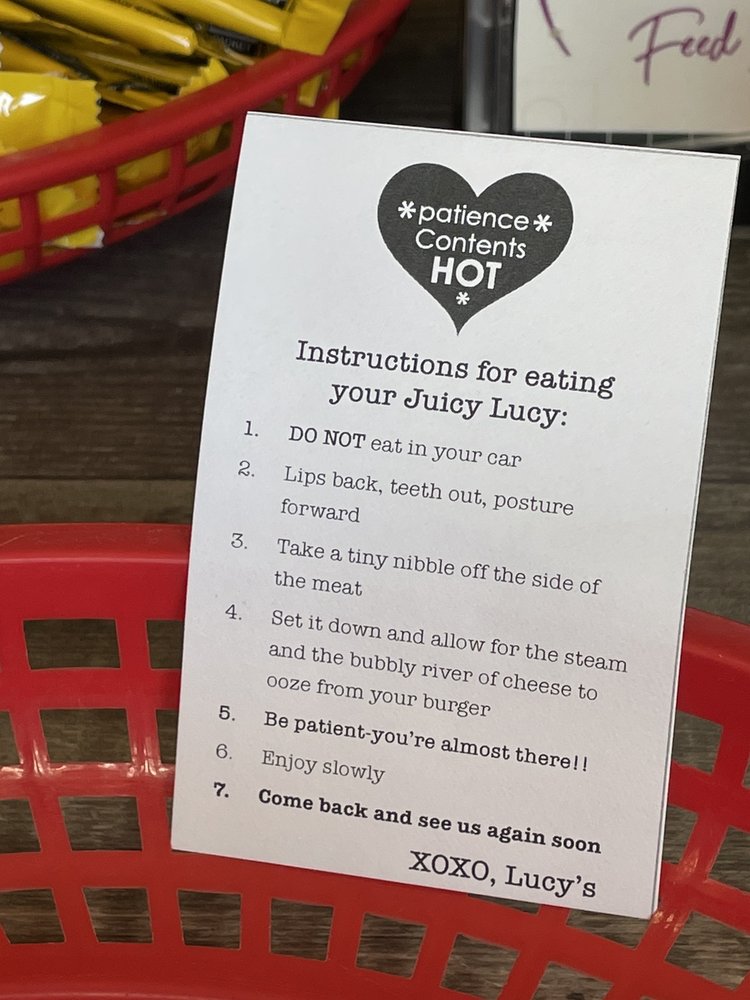 Feed
*patience*
Contents
HOT
*
Instructions for eating
your Juicy Lucy:
1. DO NOT eat in your car
2. Lips back, teeth out, posture
forward
3. Take a tiny nibble off the side of
the meat
4. Set it down and allow for the steam
and the bubbly river of cheese to
ooze from your burger
5. Be patient-you're almost there!!
6. Enjoy slowly
7. Come back and see us again soon
XOXO, Lucy's